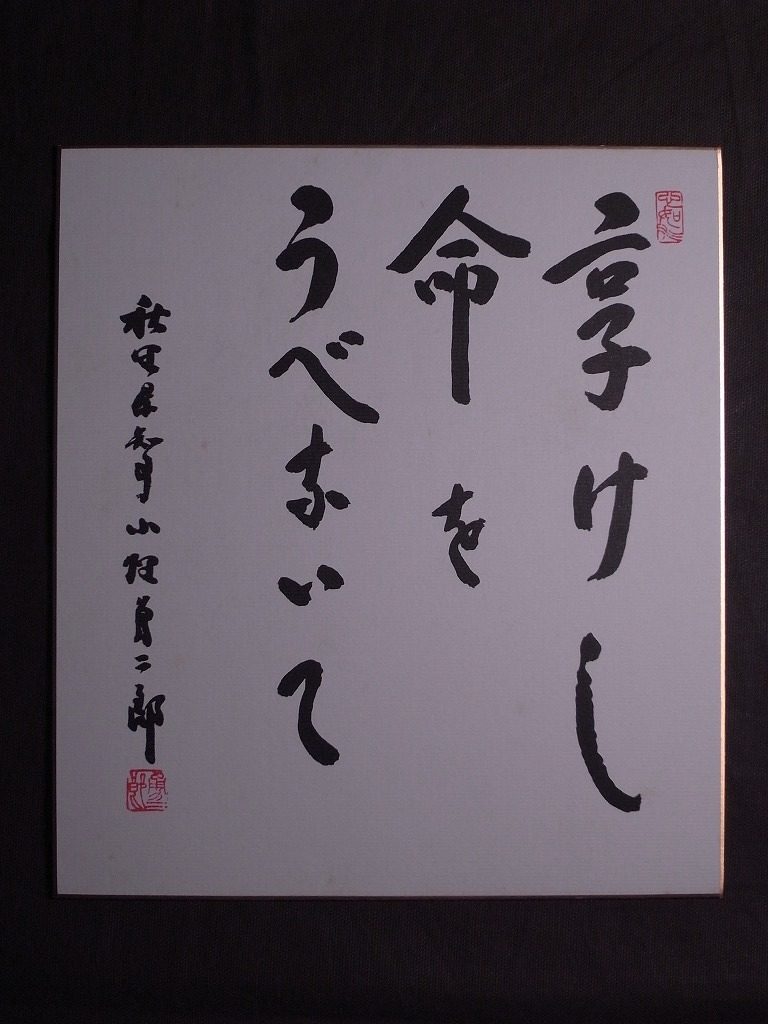 享けし
命を
うべないて
秋田県知事 小畑勇二郎